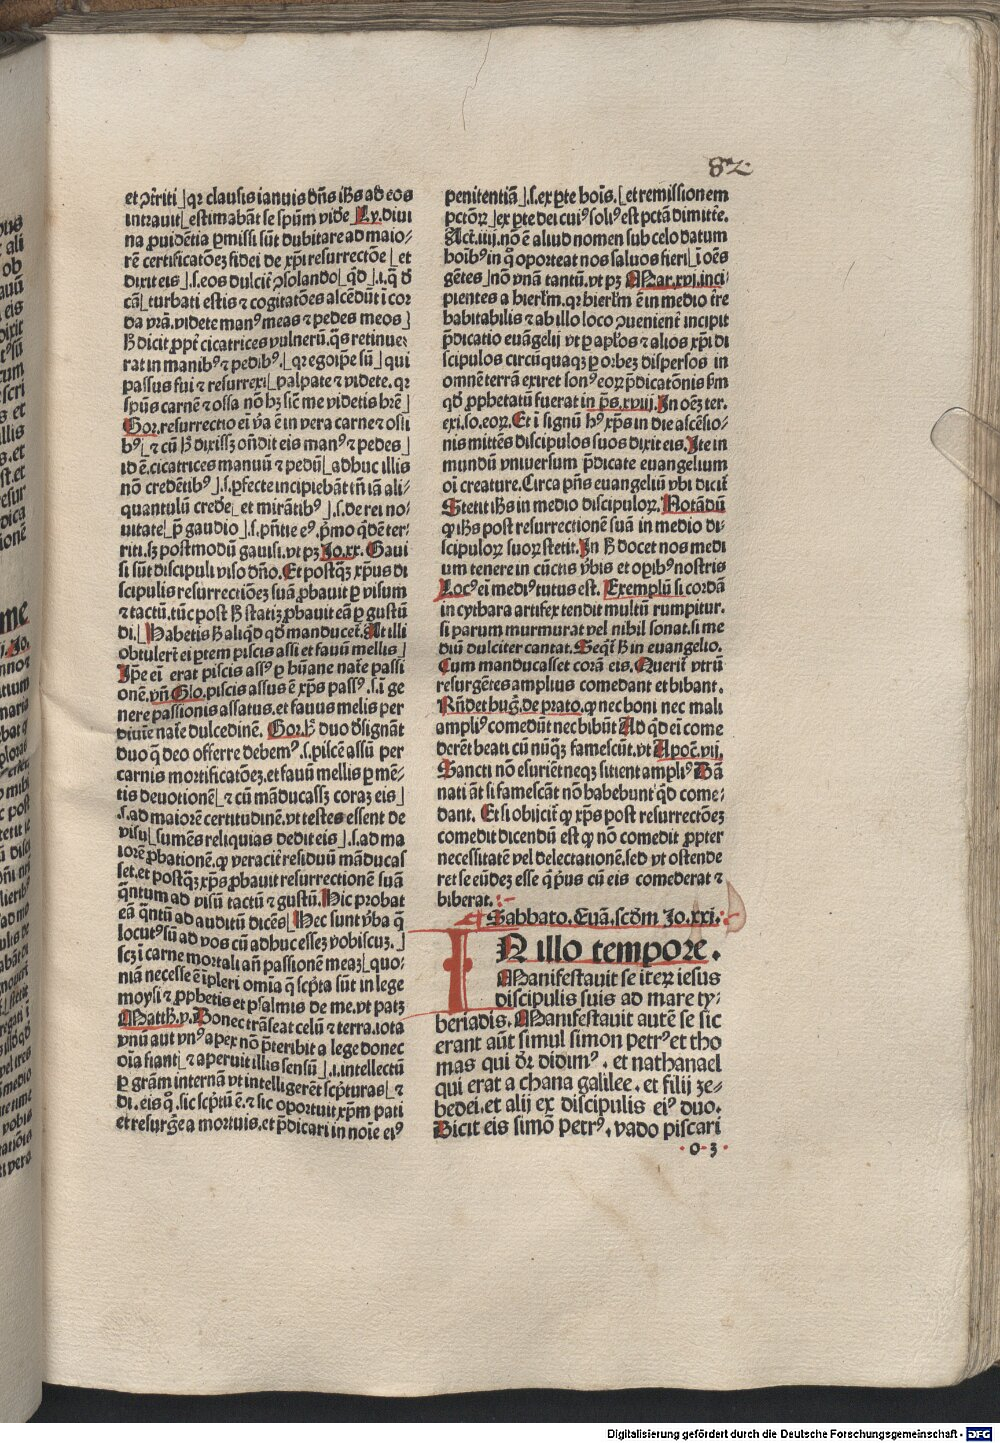 82
et ꝯtriti ⌋ qꝛ clausis ianuis dn̄s ih̄s ad eos
intrauit ⌊ estimabāt se spūm vidē Ly. diui
na ꝓuidētia ꝑmissi sūt dubitare ad maio⸗
rē certificatōeꝫ fidei de xp̄i resurrectōe ⌊ et
dixit eis ⌋ .s. eos dulcit̄ ꝯsolando ⌊ qd̄ ⌋ .i. ꝙ ð
cā ⌊ turbati estis ⁊ cogitatōes ascēdūt ī cor
da vr̄a. videte manꝰ meas ⁊ pedes meos ⌋
h̄ dicit ꝓpt̄ cicatrices vulnerū. q̄s retinue⸗
rat in manibꝰ ⁊ pedibꝰ. ⌊ qꝛ ego ip̄e sū ⌋ qui
passus fui ⁊ resurrexi ⌊ palpate ⁊ videte. qꝛ
sp̄us carnē ⁊ ossa nō hꝫ sic̄ me videtis hr̄e ⌋
Gor. resurrectio ei v̄a ē in vera carne ⁊ ossi
bꝰ ⌊ ⁊ cū h̄ dixissꝫ oñdit eis manꝰ ⁊ pedes ⌋
id ē. cicatrices manuū ⁊ pedū ⌊ adhuc illis
nō credētibꝰ ⌋ .s. ꝑfecte incipiebāt tn̄ iā ali⸗
quantulū credē ⌊ et mirātibꝰ ⌋ .s. de rei no⸗
uitate ⌊ p̄ gaudio ⌋ .s. pn̄tie eꝰ. p̄mo qͥdē ter⸗
riti. sꝫ postmodū gauisi. vt pꝫ Jo. xx. Gaui
si sūt discipuli viso dn̄o. Et postqͣꝫ xp̄us di
scipulis resurrectiōeꝫ suā ꝓbauit ꝑ visum
⁊ tactū. tūc post h̄ statiꝫ ꝓbauit eā ꝑ gustū
di. ⌊ Habetis h̄ aliqͥd qd̄ manducet̄. At illi
obtulert̄ ei ꝑtem piscis assi et fauū mellis ⌋
Ip̄e ei erat piscis assꝰ ꝑ hūane nat̄e passi
onē. vn̄ Glo. piscis assus ē xp̄s passꝰ. s. ī ge
nere passionis assatus. et fauus melis per
diuīe nat̄e dulcedinē. Gor. ꝑ h̄ duo ðsignāt
duo q̄ deo offerre debemꝰ. s. piscē assū per
carnis mortificatōeꝫ. et fauū mellis ꝑ mē⸗
tis deuotionē ⌊ ⁊ cū māducassꝫ coraꝫ eis ⌋
.s. ad maiorē certitudinē. vt testes essent de
visu ⌊ sumēs reliquias dedit eis ⌋ .s. ad ma
iorē ꝓbationē. ꝙ veracit̄ residuū māducas
set. et postqͣꝫ xp̄s ꝓbauit resurrectionē suā
qͣntum ad visū tactū ⁊ gustū. Hic probat
eā qͣntū ad auditū dicēs ⌊ Hec sunt v̄ba q̄
locutꝰ sū ad vos cū adhuc esseꝫ vobiscuꝫ. ⌋
scꝫ ī carne mortali añ passionē meaꝫ ⌊ quo⸗
niā necesse ē īpleri omīa q̄ scp̄ta sūt in lege
moysi ⁊ ꝓphetis et psalmis de me. vt patꝫ
Matth. v. Donec trāseat celū ⁊ terra. iota
vnū aut vnꝰ apex nō p̄teribit a lege donec
oīa fiant ⌊ ⁊ aperuit illis sensū ⌋ .i. intellectū
ꝑ gr̄am internā vt intelligerēt scp̄turas ⌊ ⁊
di. eis ꝙ. sic scp̄tū ē. ⁊ sic oportuit xp̄m pati
et resurg̃e a mortuis. et p̄dicari in noīe eiꝰ
penitentiā ⌋ .s. ex ꝑte hoīs. ⌊ et remissionem
pctōꝝ ⌋ ex ꝑte dei cuiꝰ soliꝰ est pctā dimittē.
Act. iiij. nō ē aliud nomen sub celo datum
hoībꝰ in q̊ oporteat nos saluos fieri ⌊ ī oēs
gētes ⌋ nō vnā tantū. vt pꝫ Mar. xvi. inci⸗
pientes a hierl̄m. qꝛ hierl̄m ē in medio tr̄e
habitabilis ⁊ ab illo loco ꝯuenient̄ incipit
p̄dicatio euāgelij vt ꝑ apl̄os ⁊ alios xp̄i di
scipulos circūquaqꝫ ꝑ orbeꝫ dispersos in
omnē terrā exiret sonꝰ eoꝝ p̄dicatōnis ẜm
qd̄ ꝓphetatū fuerat in p̄s. xviij. In oēꝫ ter.
exi. so. eoꝝ. Et ī signū hꝰ xp̄s in die ascēsio⸗
nis mittēs discipulos suos dixit eis. Ite in
mundū vniuersum p̄dicate euangelium
oī creature. Circa pn̄s euangeliū vbi dicit̄
Stetit ih̄s in medio discipuloꝝ. Notādū
ꝙ ih̄s post resurrectionē suā in medio di⸗
scipuloꝝ suoꝝ stetit. In h̄ docet nos medi
um tenere in cūctis v̄bis et oꝑibꝰ nostris
Locꝰ ei mediꝰ tutus est. Exemplū si cordā
in cythara artifex tendit multū rumpitur.
si parum murmurat vel nihil sonat. si me
diū dulciter cantat. Seqͥt̄ h̄ in euangelio.
Cum manducasset corā eis. Querit̄ vtrū
resurgētes amplius comedant et bibant.
Rn̄det hug̃. de prato. ꝙ nec boni nec mali
ampliꝰ comedūt nec bibūt Ad qͥd ei come
derēt beati cū nūqͣꝫ famescūt. vt Apoc̄. vij.
Sancti nō esuriēt neqꝫ sitient ampliꝰ Dā
nati āt si famescāt nō habebunt qͥd come⸗
dant. Et si obijcit̄ ꝙ xp̄s post resurrectōeꝫ
comedit dicendū est ꝙ nō comedit ꝓpter
necessitatē vel delectationē. sed vt ostende
ret se eūdeꝫ esse q̇ pͥus cū eis comederat ⁊
biberat.
Sabbato. Euā. scd̄m Jo. xxi.
IN illo tempore.
Manifestauit se iteꝝ iesus
discipulis suis ad mare ty⸗
beriadis. Manifestauit autē se sic
erant aūt simul simon petrꝰ et tho
mas qui dr̄ didimꝰ. et nathanael
qui erat a chana galilee. et filij ze⸗
bedei. et alij ex discipulis eiꝰ duo.
Dicit eis simō petrꝰ. vado piscari
o 3
Digitalisierung gefördert durch die Deutsche Forschungsgemeinschaft - DFG